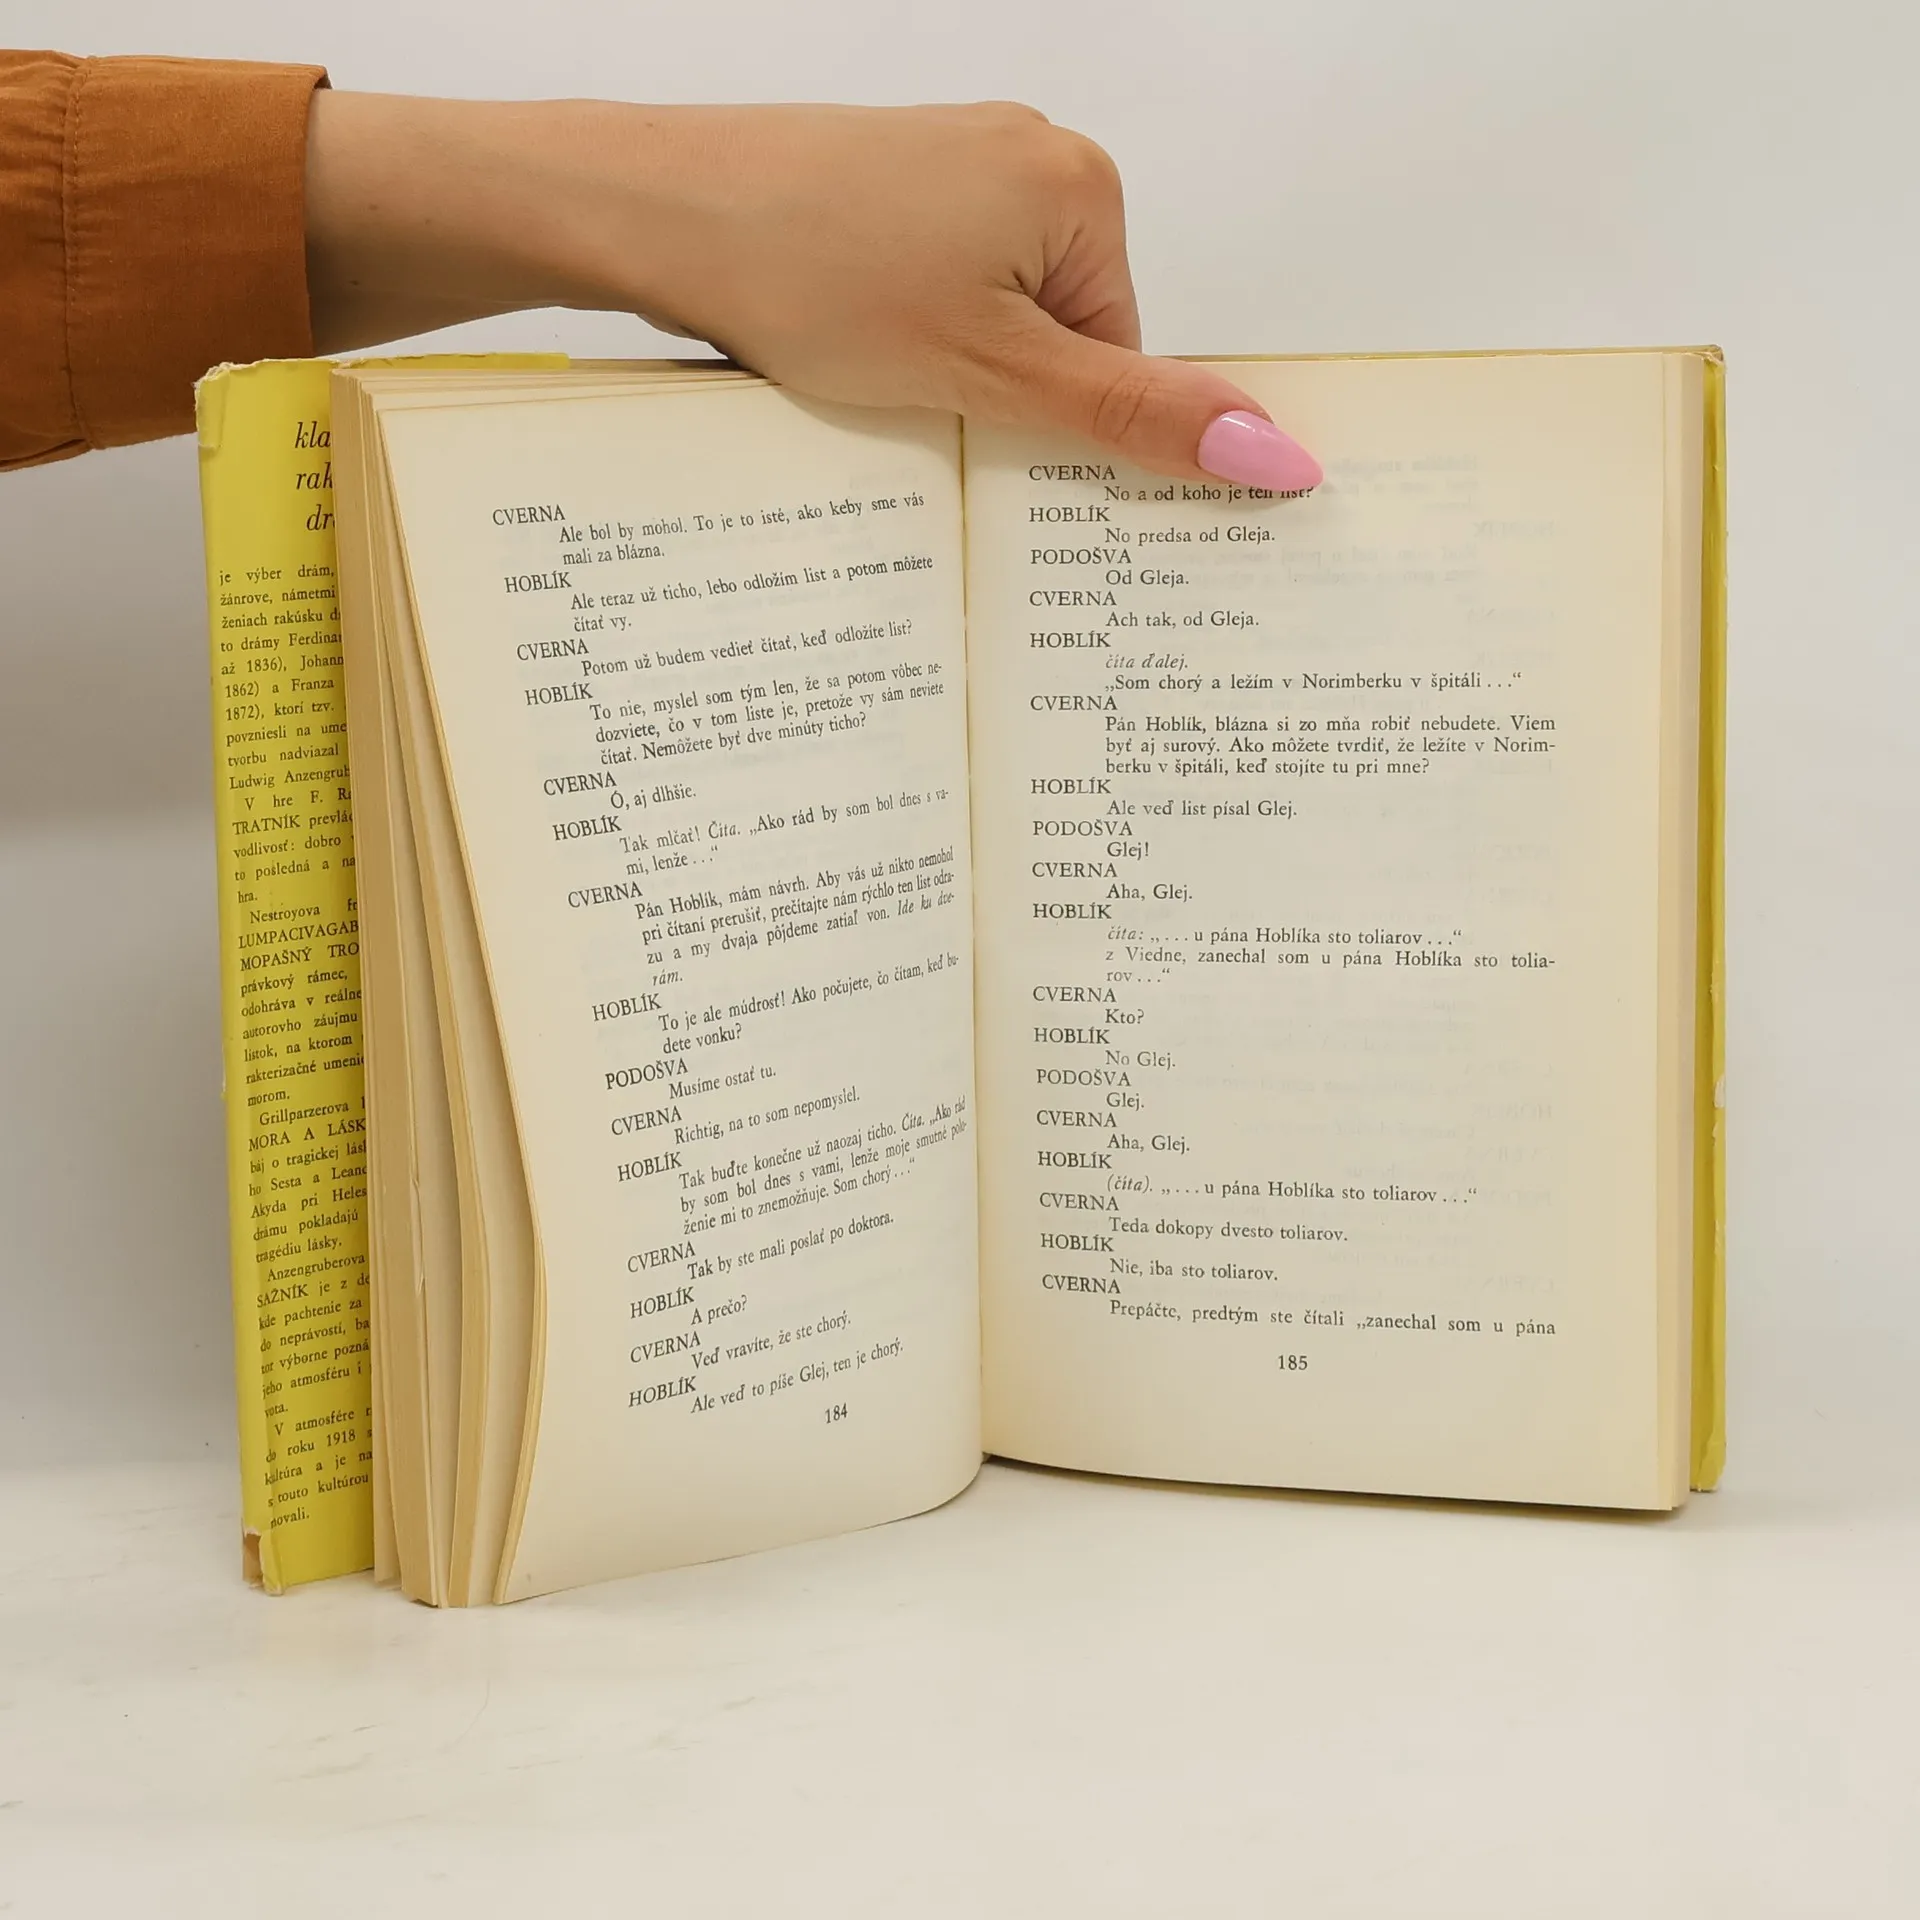 kla
rak
dr
je výber drám,
žánrove, námetmi
ženiach rakúsku d
to drámy Ferdina
až 1836), Johann
1862) a Franza
1872), ktorí tzv.
povzniesli na ume
tvorbu nadviazal
Ludwig Anzengrub
V hre F. R
TRATNÍK prevlá
vodlivosť: dobro
to posledná a na
hra.
Nestroyova fr
LUMPACIVAGAB
MOPAŠNÝ TRO
právkový rámec,
odohráva v reálne
autorovho záujmu
lístok, na ktorom
rakterizačné umeni
morom.
Grillparzerova
MORA A LÁSK
báj o tragickej lás
ho Sesta a Leand
Akyda pri Heles
drámu pokladajú
tragédiu lásky.
Anzengruberova
SAŽNÍK je z de
kde pachtenie za
do neprávostí, ba
tor výborne pozná
jeho atmosféru i
vota.
V atmosfére
do roku 1918
kultúra a je na
s touto kultúrou
movali.
CVERNA
Ale bol by mohol. To je to isté, ako keby sme vás
mali za blázna.
HOBLÍK
Ale teraz už ticho, lebo odložím list a potom môžete
čítať vy.
CVERNA
Potom už budem vedieť čítať, keď odložíte list?
HOBLÍK
To nie, myslel som tým len, že sa potom vôbec ne-
dozviete, čo v tom liste je, pretože vy sám neviete
čítať. Nemôžete byť dve minúty ticho?
CVERNA
Ó, aj dlhšie.
HOBLÍK
Tak mlčať! Číta. „Ako rád by som bol dnes s va-
mi, lenže . . .“
CVERNA
Pán Hoblík, mám návrh. Aby vás už nikto nemohol
pri čítaní prerušiť, prečítajte nám rýchlo ten list odra-
zu a my dvaja pôjdeme zatiaľ von. Ide ku dve-
rám.
HOBLÍK
To je ale múdrosť! Ako počujete, čo čítam, keď bu-
dete vonku?
PODOŠVA
Musíme ostať tu.
CVERNA
Richtig, na to som nepomyslel.
HOBLÍK
Tak buďte konečne už naozaj ticho. Číta. „Ako rád
by som bol dnes s vami, lenže moje smutné polo-
ženie mi to znemožňuje. Som chorý . . .“
CVERNA
Tak by ste mali poslať po doktora.
HOBLÍK
A prečo?
CVERNA
Veď vravíte, že ste chorý.
HOBLÍK
Ale veď to píše Glej, ten je chorý.
184
CVERNA
No a od koho je ten list?
HOBLÍK
No predsa od Gleja.
PODOŠVA
Od Gleja.
CVERNA
Ach tak, od Gleja.
HOBLÍK
číta ďalej.
„Som chorý a ležím v Norimberku v špitáli . . .“
CVERNA
Pán Hoblík, blázna si zo mňa robiť nebudete. Viem
byť aj surový. Ako môžete tvrdiť, že ležíte v Norim-
berku v špitáli, keď stojíte tu pri mne?
HOBLÍK
Ale veď list písal Glej.
PODOŠVA
Glej!
CVERNA
Aha, Glej.
HOBLÍK
číta: „ . . . u pána Hoblíka sto toliarov . . .“
z Viedne, zanechal som u pána Hoblíka sto tolia-
rov . . .“
CVERNA
Kto?
HOBLÍK
No Glej.
PODOŠVA
Glej.
CVERNA
Aha, Glej.
HOBLÍK
(číta). „ . . . u pána Hoblíka sto toliarov . . .“
CVERNA
Teda dokopy dvesto toliarov.
HOBLÍK
Nie, iba sto toliarov.
CVERNA
Prepáčte, predtým ste čítali „zanechal som u pána
185